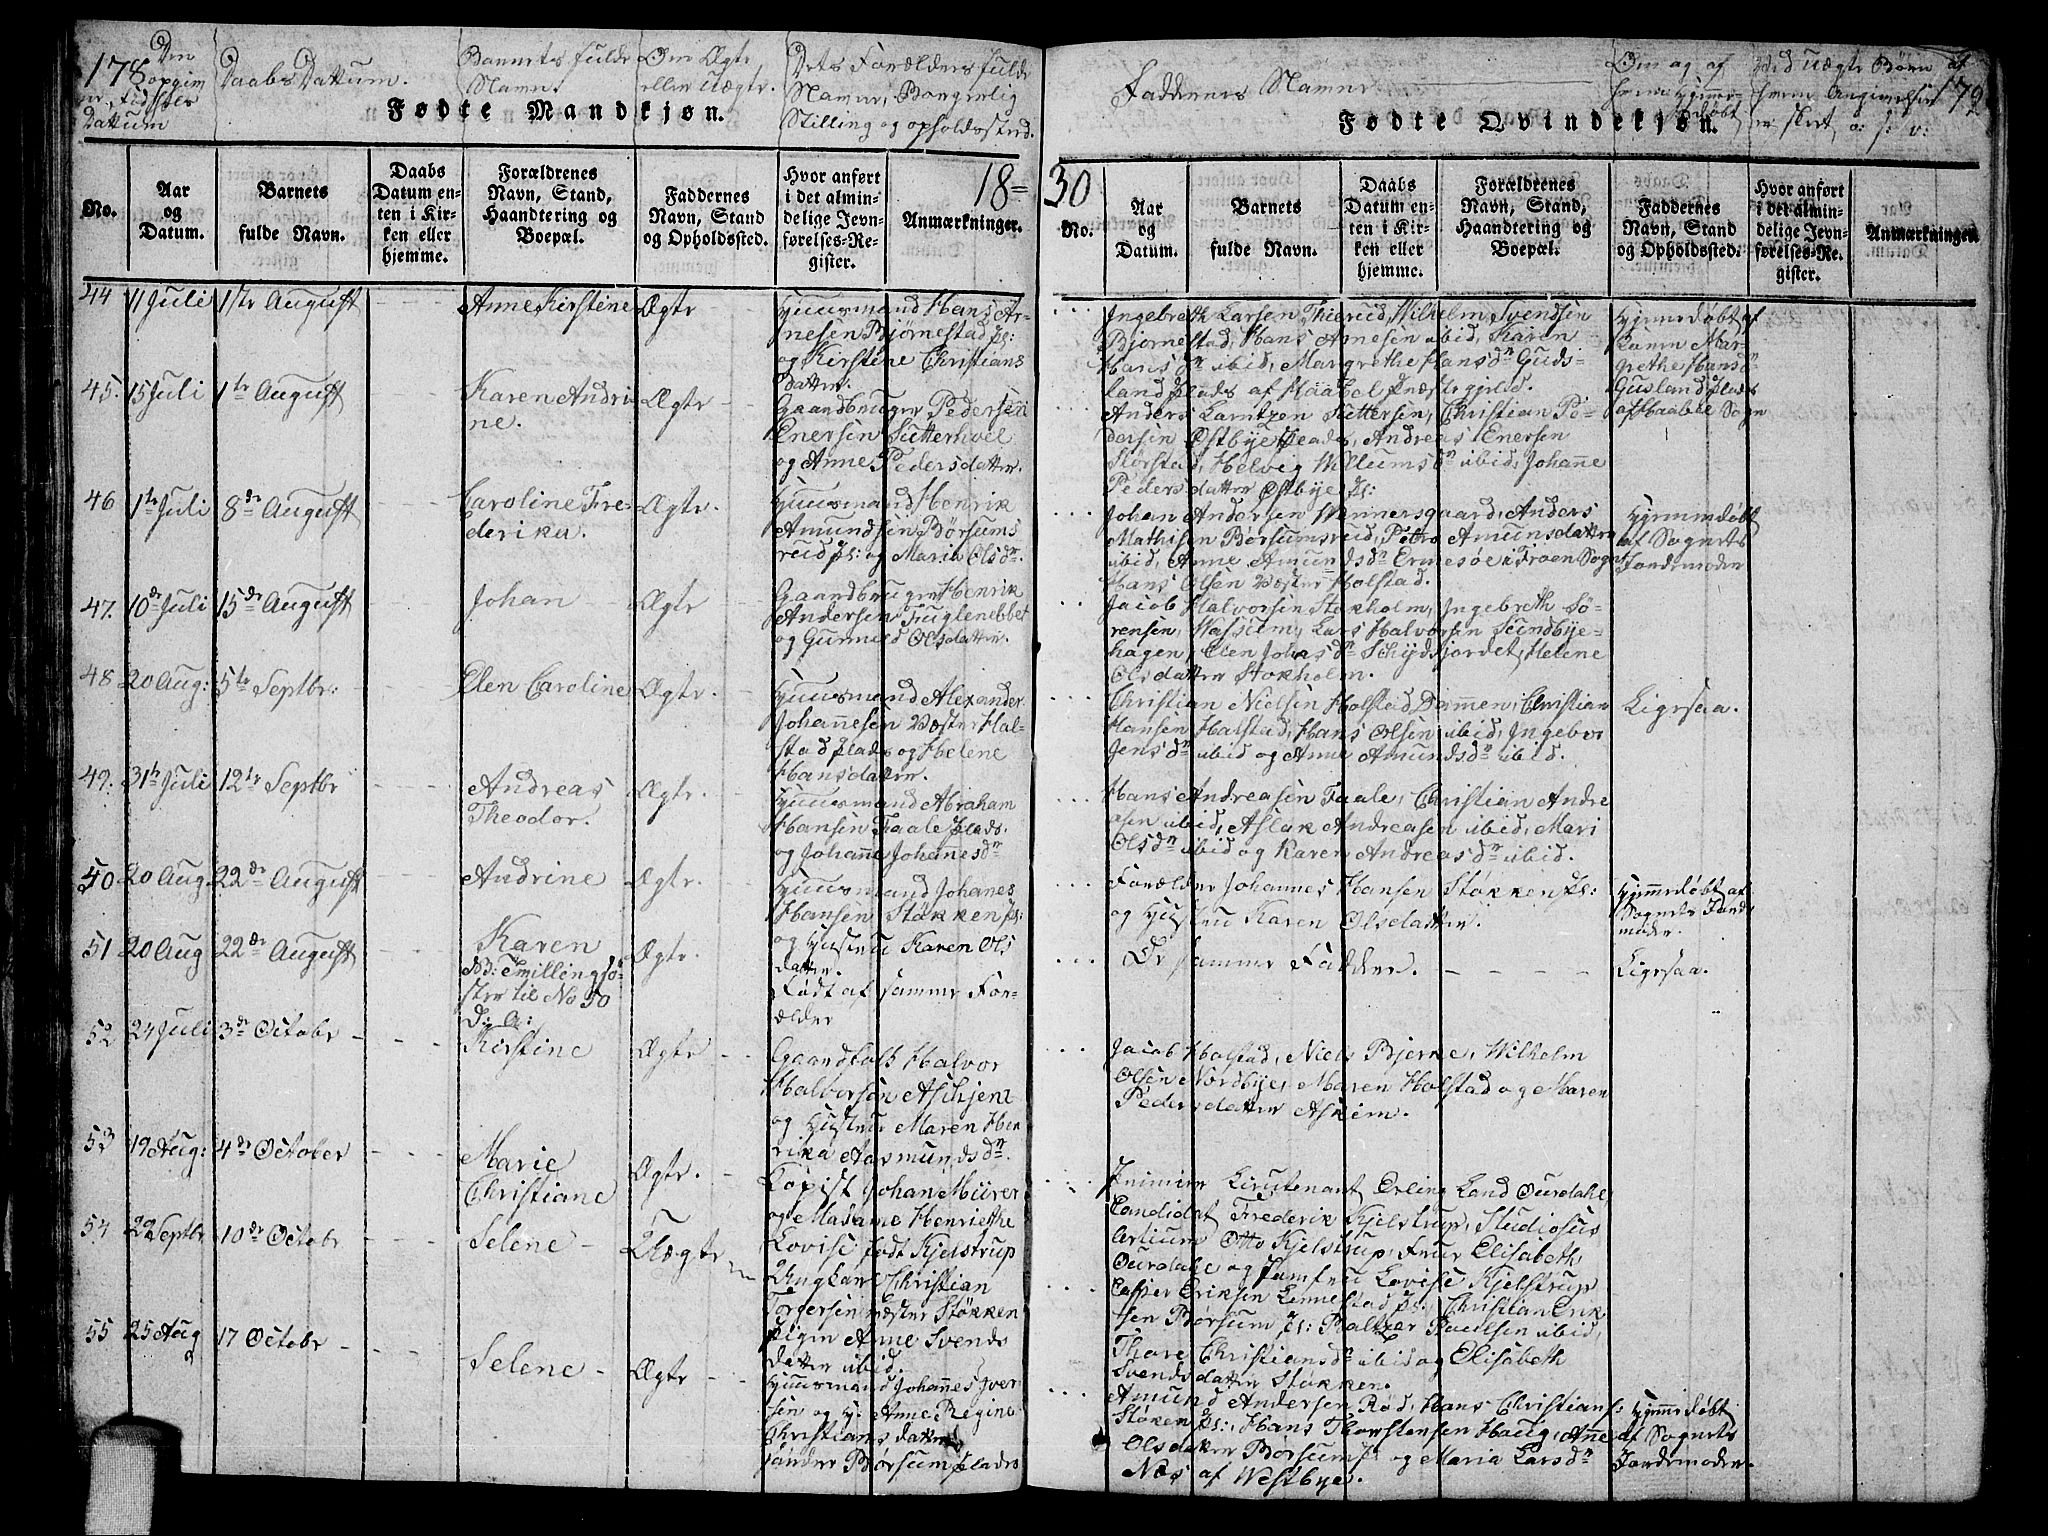 178
Den
opgivne
Fødsels
Dattum
Daabs Dattum.
Barnets fulde
Navn.
Om Ægte
eller Uægte.
Dets Forældres fulde
Navne, Borgerlig
Stilling og opholdssted.
Fødte Mandkjøn.
No.
Aar
og
Datum.
Barnets
fulde Navn.
Daabs
Datum en-
ten i Kir-
ken eller
hjemme.
Forældrenes
Navn, Stand,
Haandtering og
Boepæl.
Faddernes
Navn, Stand
og Opholdssted.
Hvor anført
i det almin-
delige Jevn-
førelses-Re-
gister.
Anmærkninger.
18=
44
11 Juli
1ste August
Anne Kirstine
Ægte
Huusmand Hans Ar-
nesen Bjørnestad pl:
og Kirstine Christians
datter.
45.
15 Juli
1te August
Karen Andri-
ne.
Ægte
Gaardbruger Pedersen
Enersen Sutterhoel
og Anne Pedersdatter.
46
1te Juli
8de August
Caroline Fre-
derika.
Ægte.
Huusmand Henrik
Amundsen Børsums
reud pl: og Maria Olsdr.
47.
10de Juli
15de August
Johan
Ægte
Gaardbruger Henrik
Andersen Fuglenebbet
og Gunnild Olsdatter.
48
20 Aug:
5te Septbr:
Elen Caroline
Ægte.
Huusmand Alexander
Johannesen Væster Hal-
stad plads og Helene
Hansdatter.
49.
31te Juli
12te Septbr
Andreas
Theodor.
Ægte.
Huusmand Abraham
Hansen Taale plads.
og Johanne Johannesdr
50
20 Aug.
22de August
Andrine
Ægte.
Huusmand Johanes
Hansen Støkken pl:
og Hustru Karen Ols
datter.
51
20 Aug
22de August
Karen
NB: Tvillingsø-
ster til No 50
D: A:
Ægte.
Født af samme For-
ælder
52
24 Juli
3de Octobr
Kirstine
Ægte
Gaardfolk Halvor
Halvorsen Aschjem
og Hustrue Maren Hen
rika Aasmundsdr.
53
19 Aug:
4de October
Marie
Christiane
Ægte.
Copist Johan Mürer
og Madame Henriethe
Lovise født Kjelstrup
54
22 Septbr
10de Octobr
Selene
Uægte
Ungkar Christian
Torgersen væster Støkken
pigen Anne Svends
datter ubid.
55
25 Aug
17 Octobr
Selene
Ægte
Huusmand Johannes Iver
sen og H. Anne Regine
Christians datter
søndre Børsum plads
179
Faddernes Navne
Om og af
hvem Hjemme-
døbt
Ved Uægte Børn af
hvem Angivelsen
er skeet o: s: v:
Fødte Qvindekjøn.
30
No.
Aar
og
Datum.
Barnets
fulde Navn.
Daabs
Datum en-
ten i Kir-
ken eller
hjemme.
Forældrenes
Navn, Stand,
Haandtering og
Boepæl.
Faddernes
Navn, Stand
og Opholdssted.
Hvor anført
i det almin-
delige Jevn-
førelses-Re-
gister.
Anmærkninger.
Ingebreth Larsen Thiereid, Wilhelm Svendsen
Bjørnestad, Hans Arnesen ubid, Karen
Hansdr ubid, Margrethe Hansdr Guds-
land plads af Haabøl Præstegjeld.
Hjemmedøbt af
Konen Mar-
grethe Hansdr
Gusland plads
af Haabøl Sogn
Anders Larntzen Suttersen, Christian Pe-
dersen Østbye plads, Andreas Enersen
Størstad, Helvig Willumsdr ubid, Johanne
Pedersdatter Østbye pl:
Johan Andersen Wennersgaard, Anders
Mathisen Børsumsreud, Petro Amunsdatter
ubid, Anne Amundsdr Ermesøe i Froen Sogn
Hans Olsen Væster Holstad.
Hjemmedøbt
af Sognets
Jordemoder
Jacob Halvorsen Stokholm, Ingebreth Sø-
rensen, Wassum, Lars Halvorsen Sundbye-
hagen, Elen Johasdr Schydsjordet, Helene
Olsdatter Stokholm.
Christian Nielsen Holstad Dammen, Christian
Hansen Halstad, Hans Olsen ubid, Ingebor
Jensdr ubid og Anne Amundsdr ubid.
Ligesaa.
Hans Andreasen Taale, Christian Andre
asen ubid, Aslak Andreasen ubid, Mari
Olsdr ubid og Karen Andreasdr ubid.
Forælder Johannes Hansen Støkken pl:
og Hustru Karen Olsdatter.
Hjemmedøbt af
Sognets Jorde
moder.
De samme Fadder.
Ligesaa.
Jacob Holstad, Niels Bjerke, Wilhelm
Olsen Nordbye, Maren Holstad og Maren
Pedersdatter Askim.
Premier Lieutenant Erling Land Ourdahl
Candidat Frederik Kjelstrup, Studiosus
Artium Otto Kjelstrup, Frue Elisabeth
Ourdahl og Jomfrue Lovise Kjelstrup
Casper Eriksen Linnestad pl: Christian Erik
sen Børsum pl: Baltzar Paulsen ubid,
Thore Christiansdr ubid og Elisabeth
Svendsdatter Støkken.
Amund Andersen Rød, Hans Christians:
Støken pl:, Hans Thorstensen Haug, Anne
Olsdatter Børsum pl og Maria Larsdr
Næs af Westbye.
Hjemmedøbt
af Sognets
Jordemoder.